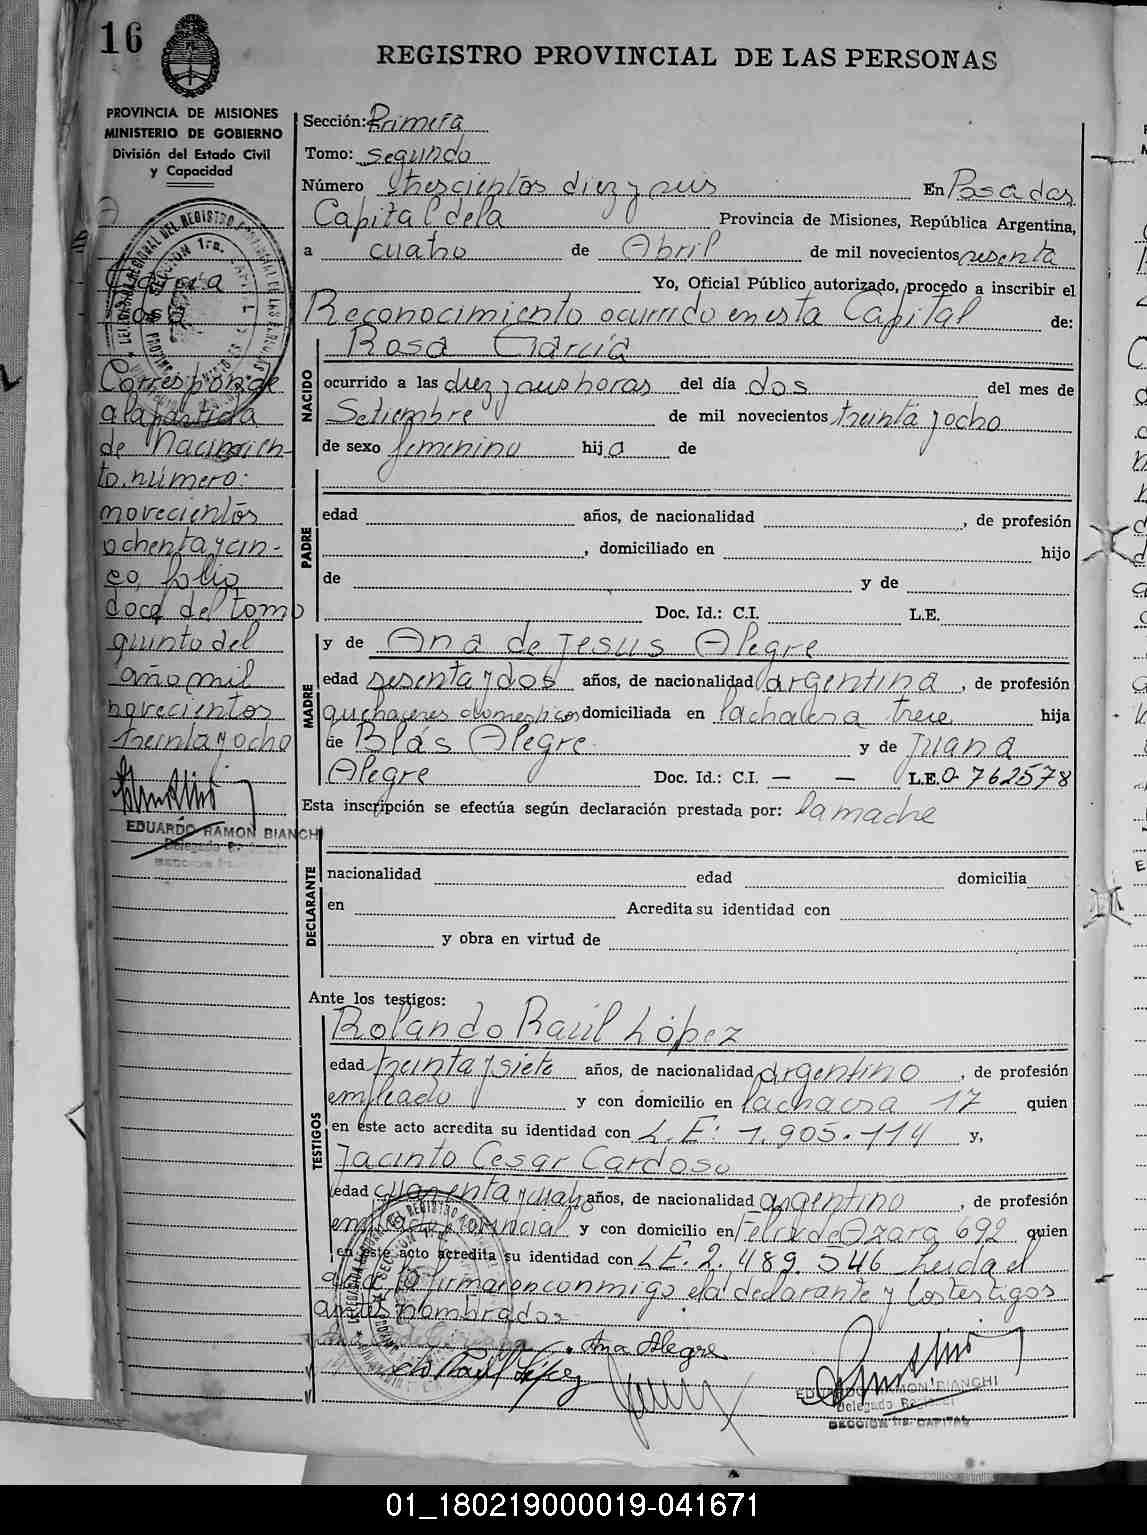 16
REGISTRO PROVINCIAL DE LAS PERSONAS
PROVINCIA DE MISIONES
MINISTERIO DE GOBIERNO
División del Estado Civil
y Capacidad
García
Rosa
Corresponde
a la partida
de nacimien-
to número:
novecientos
ochenta y cin-
co, folio
doce del tomo
quinto del
año mil
novecientos
treinta y ocho
EDUARDO RAMON BIANCHI
Delegado
Sección: Primera
Tomo: segundo
Número trescientos diez y seis En Posadas
Capital de la Provincia de Misiones, República Argentina,
a cuatro de Abril de mil novecientos sesenta
Yo, Oficial Público autorizado, procedo a inscribir el
Reconocimiento ocurrido en esta Capital de:
Rosa García
NACIDO
ocurrido a las diez y seis horas del día dos del mes de
Setiembre de mil novecientos treinta y ocho
de sexo femenino hija de
PADRE
edad años, de nacionalidad , de profesión
, domiciliado en hijo
de y de
Doc. Id.: C.I. L.E.
MADRE
y de Ana de Jesus Alegre
edad sesenta y dos años, de nacionalidad argentina, de profesión
quehaceres domesticos domiciliada en la chacra trece hija
de Blás Alegre y de Juana
Alegre Doc. Id.: C.I. — — L.E. 0.762578
Esta inscripción se efectúa según declaración prestada por: la madre
DECLARANTE
nacionalidad edad domicilia
en Acredita su identidad con
y obra en virtud de
Ante los testigos:
TESTIGOS
Rolando Raúl López
edad treinta y siete años, de nacionalidad argentino, de profesión
empleado y con domicilio en la chacra 17 quien
en este acto acredita su identidad con L.E: 1.905.114 y,
Jacinto Cesar Cardoso
edad cuarenta y cuatro años, de nacionalidad argentino, de profesión
empleado provincial y con domicilio en Felix de Azara 692 quien
en este acto acredita su identidad con L.E. 2.489.546 Leída el
acta, la firmaron conmigo ela declarante y los testigos
antes nombrados
Ana Alegre
Raúl López
EDUARDO RAMON BIANCHI
Delegado Regional
SECCION 1ra. CAPITAL
01_180219000019-041671